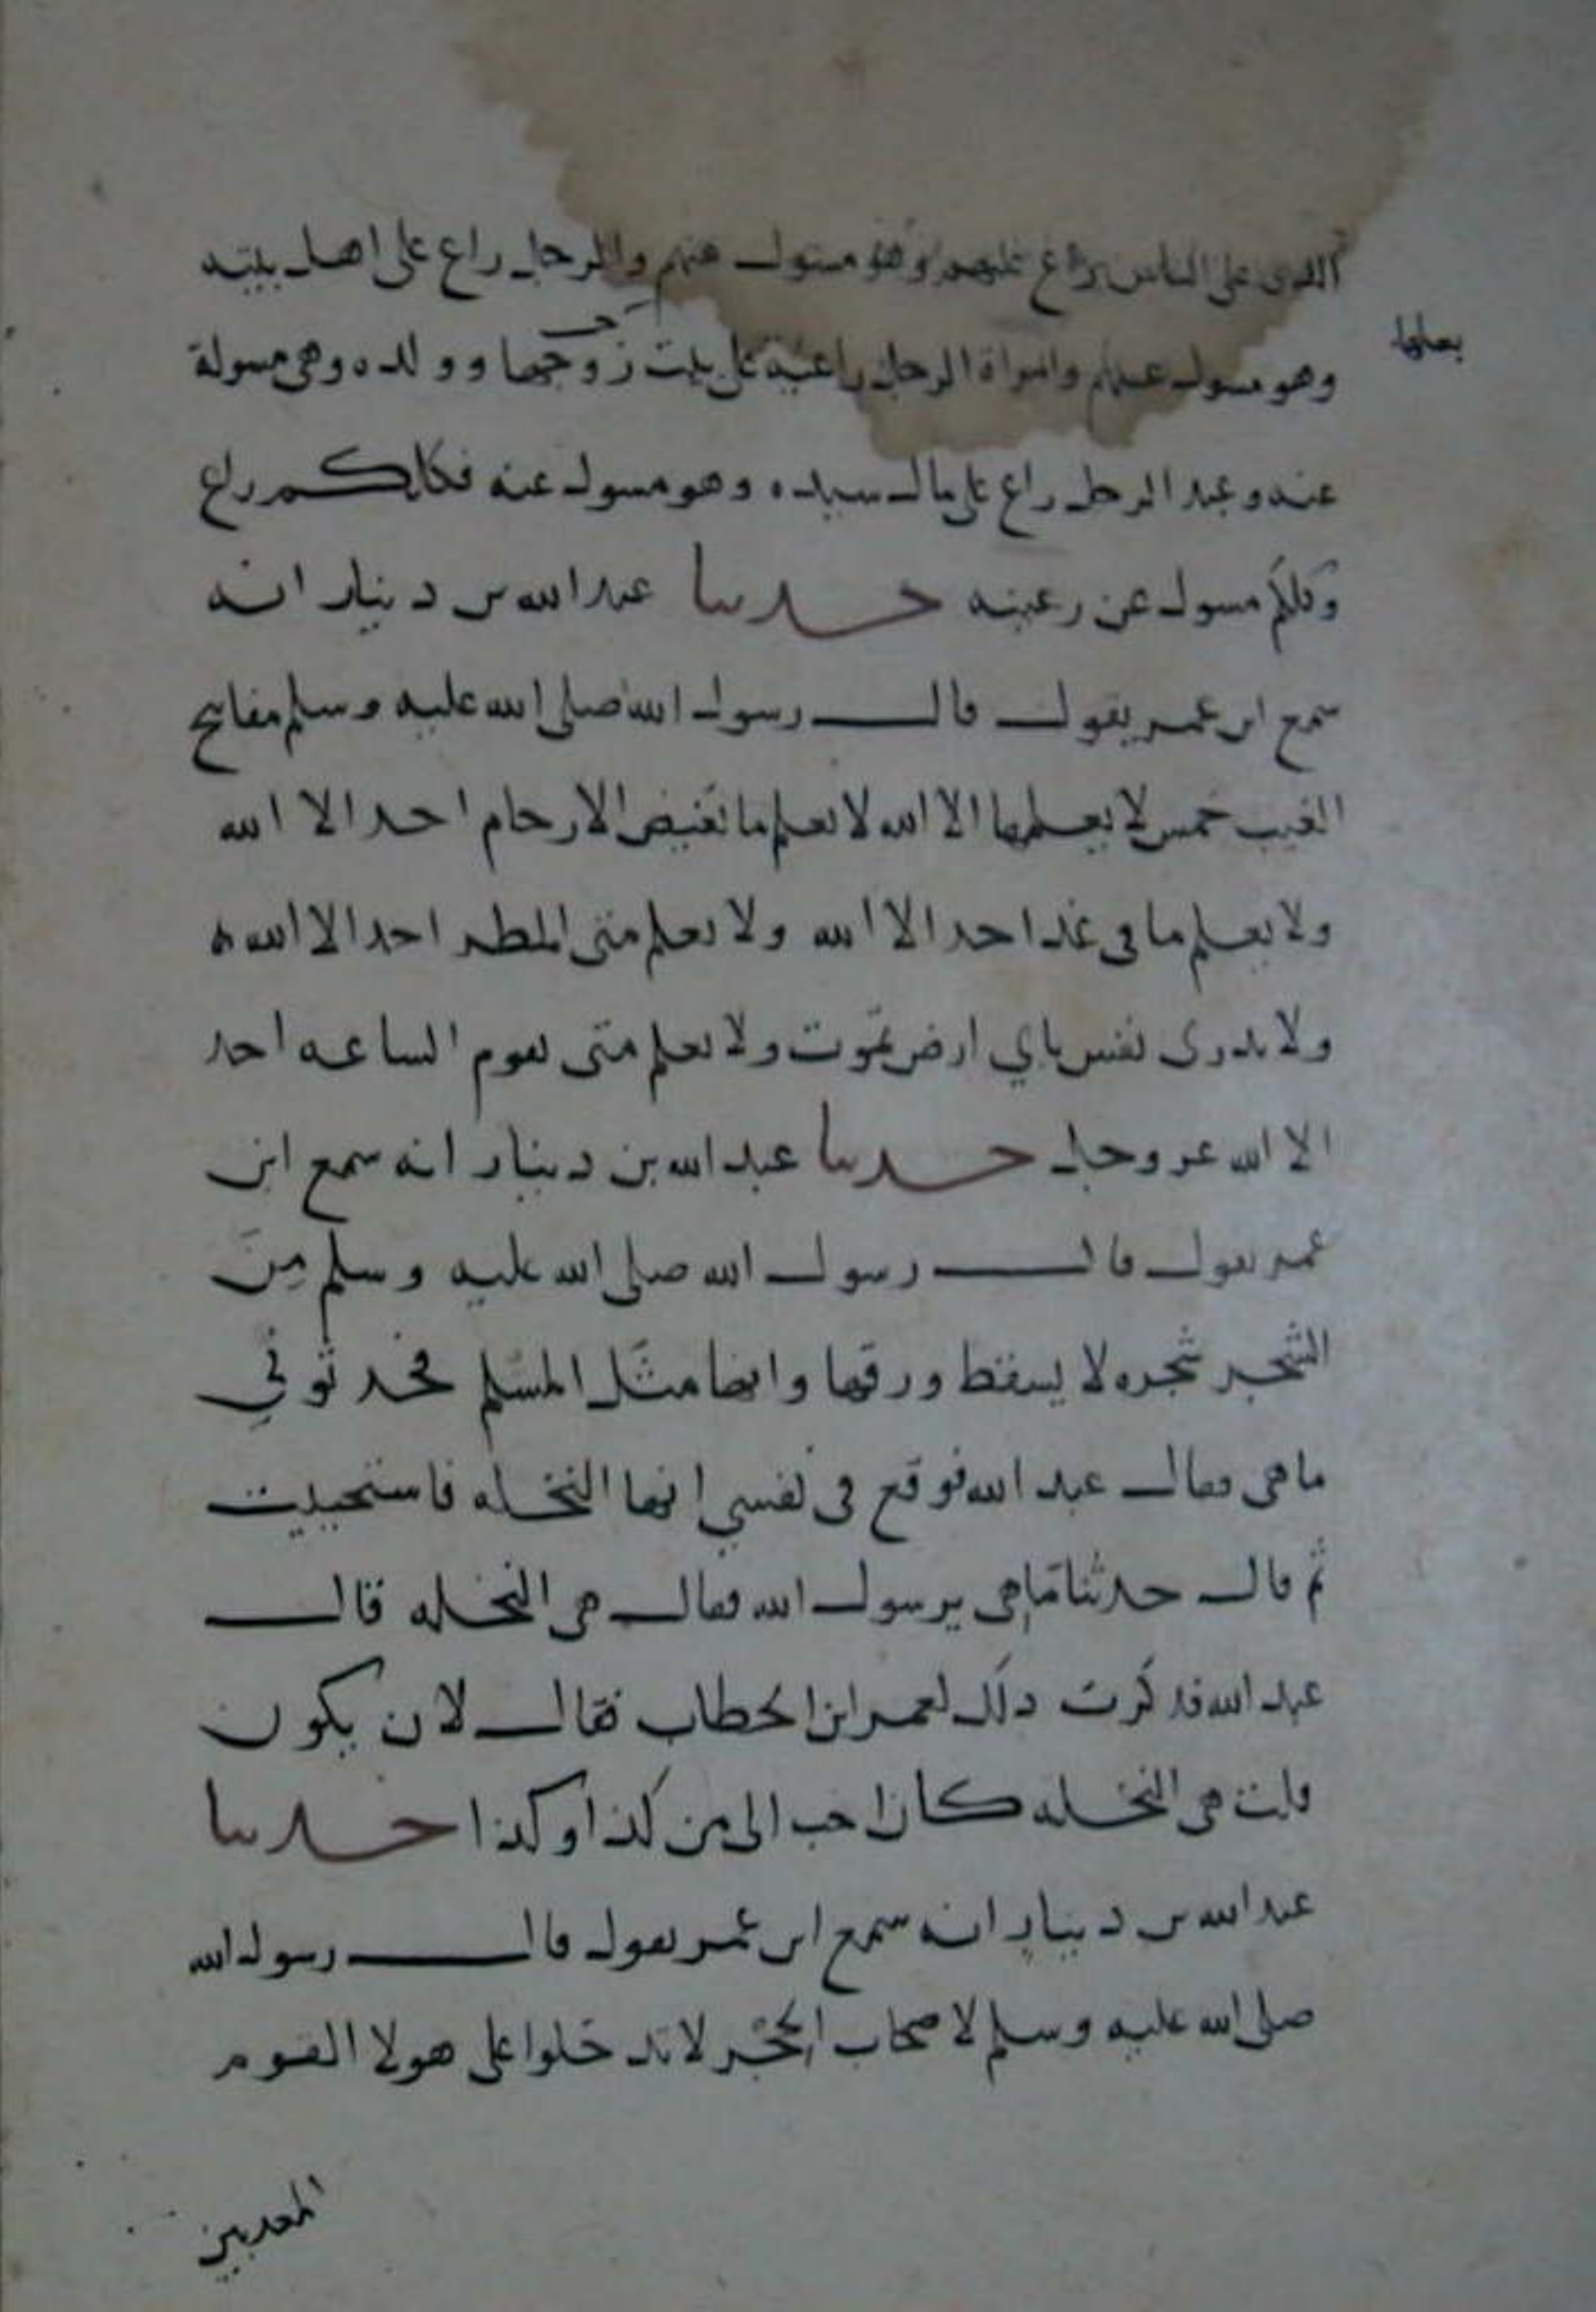 الذى على الناس راع عليهم وهو مسول عنهم والرجل راع على اهل بيته
بعلها
وهو مسول عنهم وامراة الرجل راعية على بيت زوجها وولده وهى مسولة
عنه وعبد الرجل راع على مال سيده وهو مسول عنه فكلكم راع
وكلكم مسول عن رعيته حدثنا عبد الله بن دينار انه
سمع ابن عمر يقول قال رسول الله صلى الله عليه وسلم مفاتيح
الغيب خمس لا يعلمها الا الله لا يعلم ما تغيض الارحام احد الا الله
ولا يعلم ما فى غد احد الا الله ولا يعلم متى المطر احد الا الله
ولا تدرى نفس باي ارض تموت ولا يعلم متى تقوم الساعه احد
الا الله عز وجل حدثنا عبد الله بن دينار انه سمع ابن
عمر يقول قال رسول الله صلى الله عليه وسلم مِنَ
الشجر شجره لا يسقط ورقها وانها مثل المسلم فحدثوني
ما هى فقال عبد الله فوقع فى نفسي انها النخله فاستحييت
ثم قال حدثنا ما هى يرسول الله فقال هى النخله قال
عبد الله فذكرت ذلك لعمر ابن الخطاب فقال لان يكون
قلت هى النخله كان احب الى من كذا وكذا حدثنا
عبد الله بن دينار انه سمع ابن عمر يقول قال رسول الله
صلى الله عليه وسلم لاصحاب الحجر لا تدخلوا على هولا القوم
المعذبين